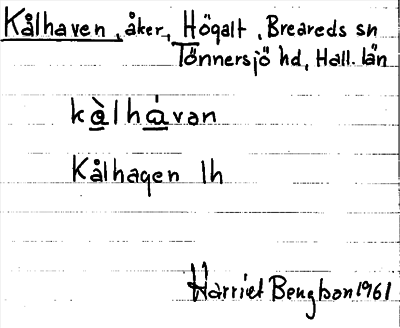 Kålhaven, åker, Högalt, Breareds sn
Tönnersjö hd, Hall. län
kàlhávan
Kålhagen lh
Harriet Bengtson 1961